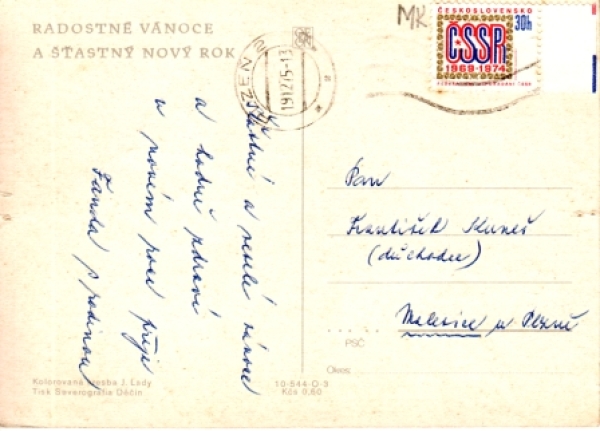 RADOSTNÉ VÁNOCE
A ŠŤASTNÝ NOVÝ ROK
PLZEŇ 2
19.12.75-13
MK
ČESKOSLOVENSKO
30h
ČSSR
1969-1974
Šťastné a veselé vánoce
a hodně zdraví
v novém roce přeje
Fanda s rodinou
Pan
František Kuneš
(důchodce)
Malesice u Plzně
PSČ
Okres:
Kolorovaná kresba J. Lady
Tisk Severografie Děčín
10-544-O-3
Kčs 0,60